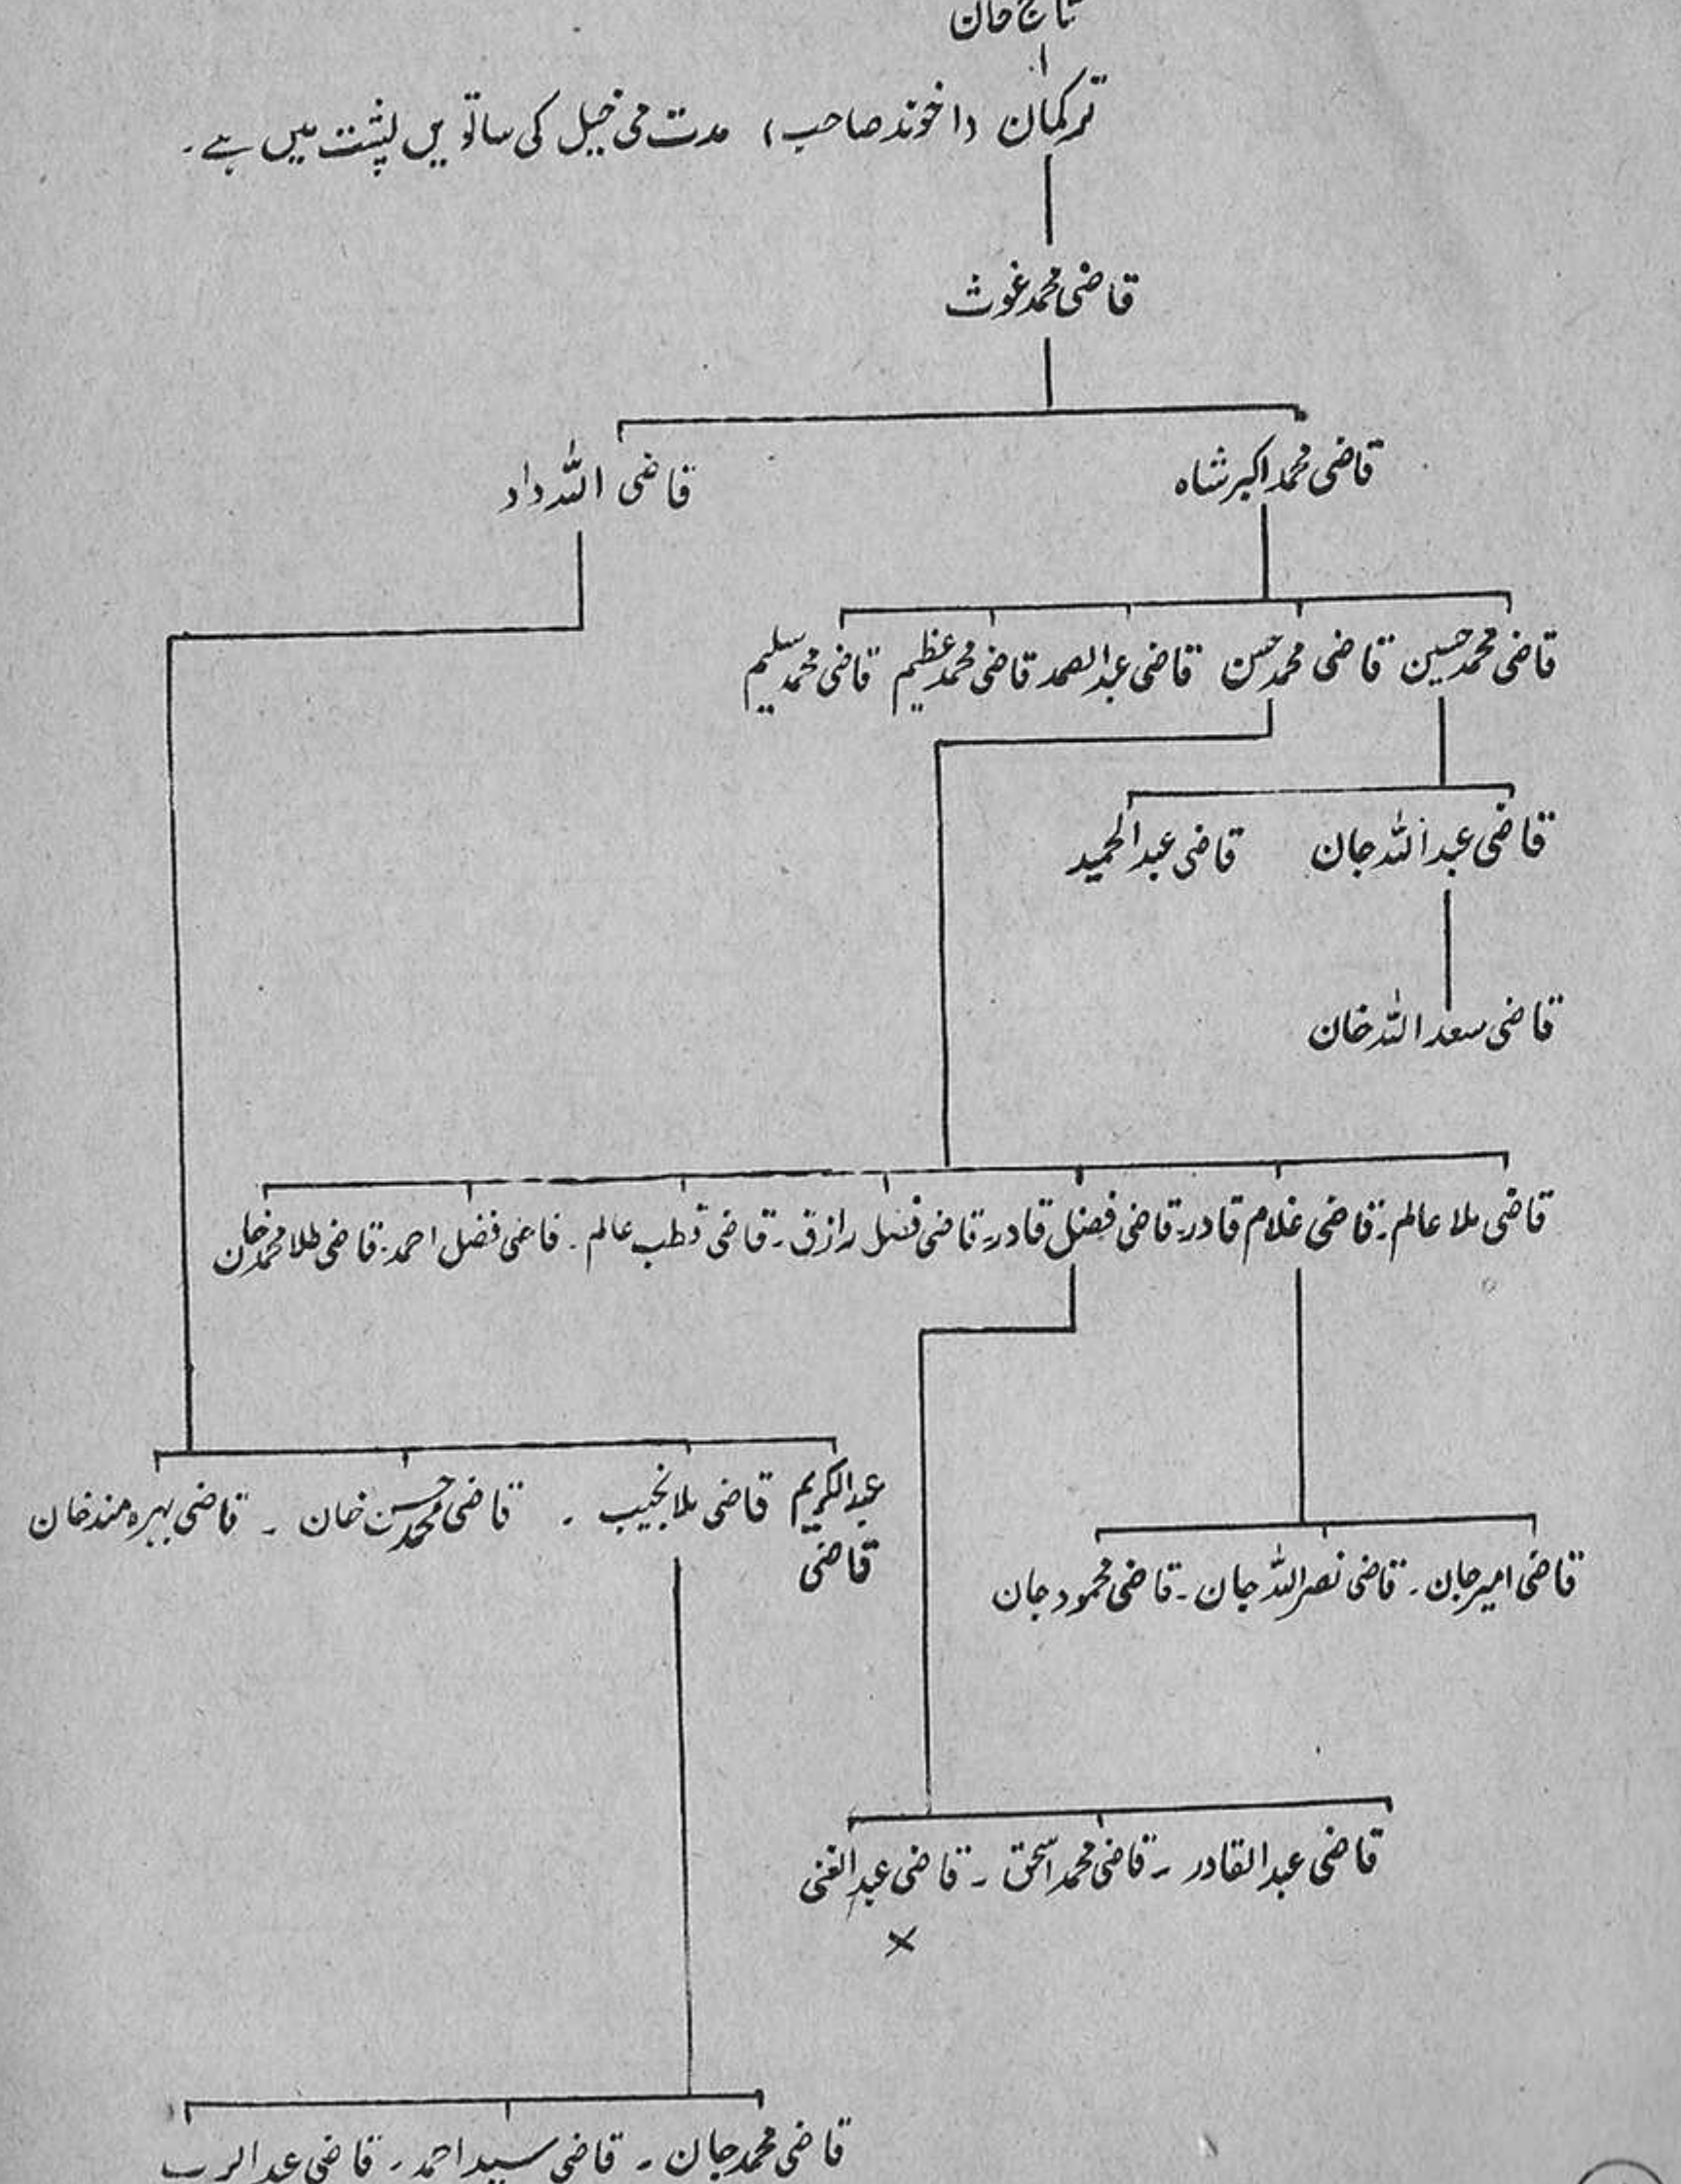 تاج خان
ترکمان (اخوند صاحب) مدت می خیل کی ساتویں پشت میں ہے۔
قاضی محمد غوث
قاضی محمد اکبر شاہ قاضی اللہ داد
قاضی محمد حسین قاضی محمد حسن قاضی عبدالصمد قاضی محمد عظیم قاضی محمد سلیم
قاضی عبداللہ جان قاضی عبدالحمید
قاضی سعداللہ خان
قاضی ملا عالم۔ قاضی غلام قادر۔ قاضی فضل قادر۔ قاضی فضل رازق۔ قاضی قطب عالم۔ قاضی فضل احمد۔ قاضی طلا محمد خان
عبدالکریم قاضی ملا نجیب ۔ قاضی محمد حسن خان ۔ قاضی بہرہ مند خان
قاضی
قاضی امیر جان۔ قاضی نصراللہ جان۔ قاضی محمود جان
قاضی عبدالقادر ۔ قاضی محمد اسحٰق ۔ قاضی عبدالغنی
×
قاضی محمد جان ۔ قاضی سید احمد ۔ قاضی عبدالرب